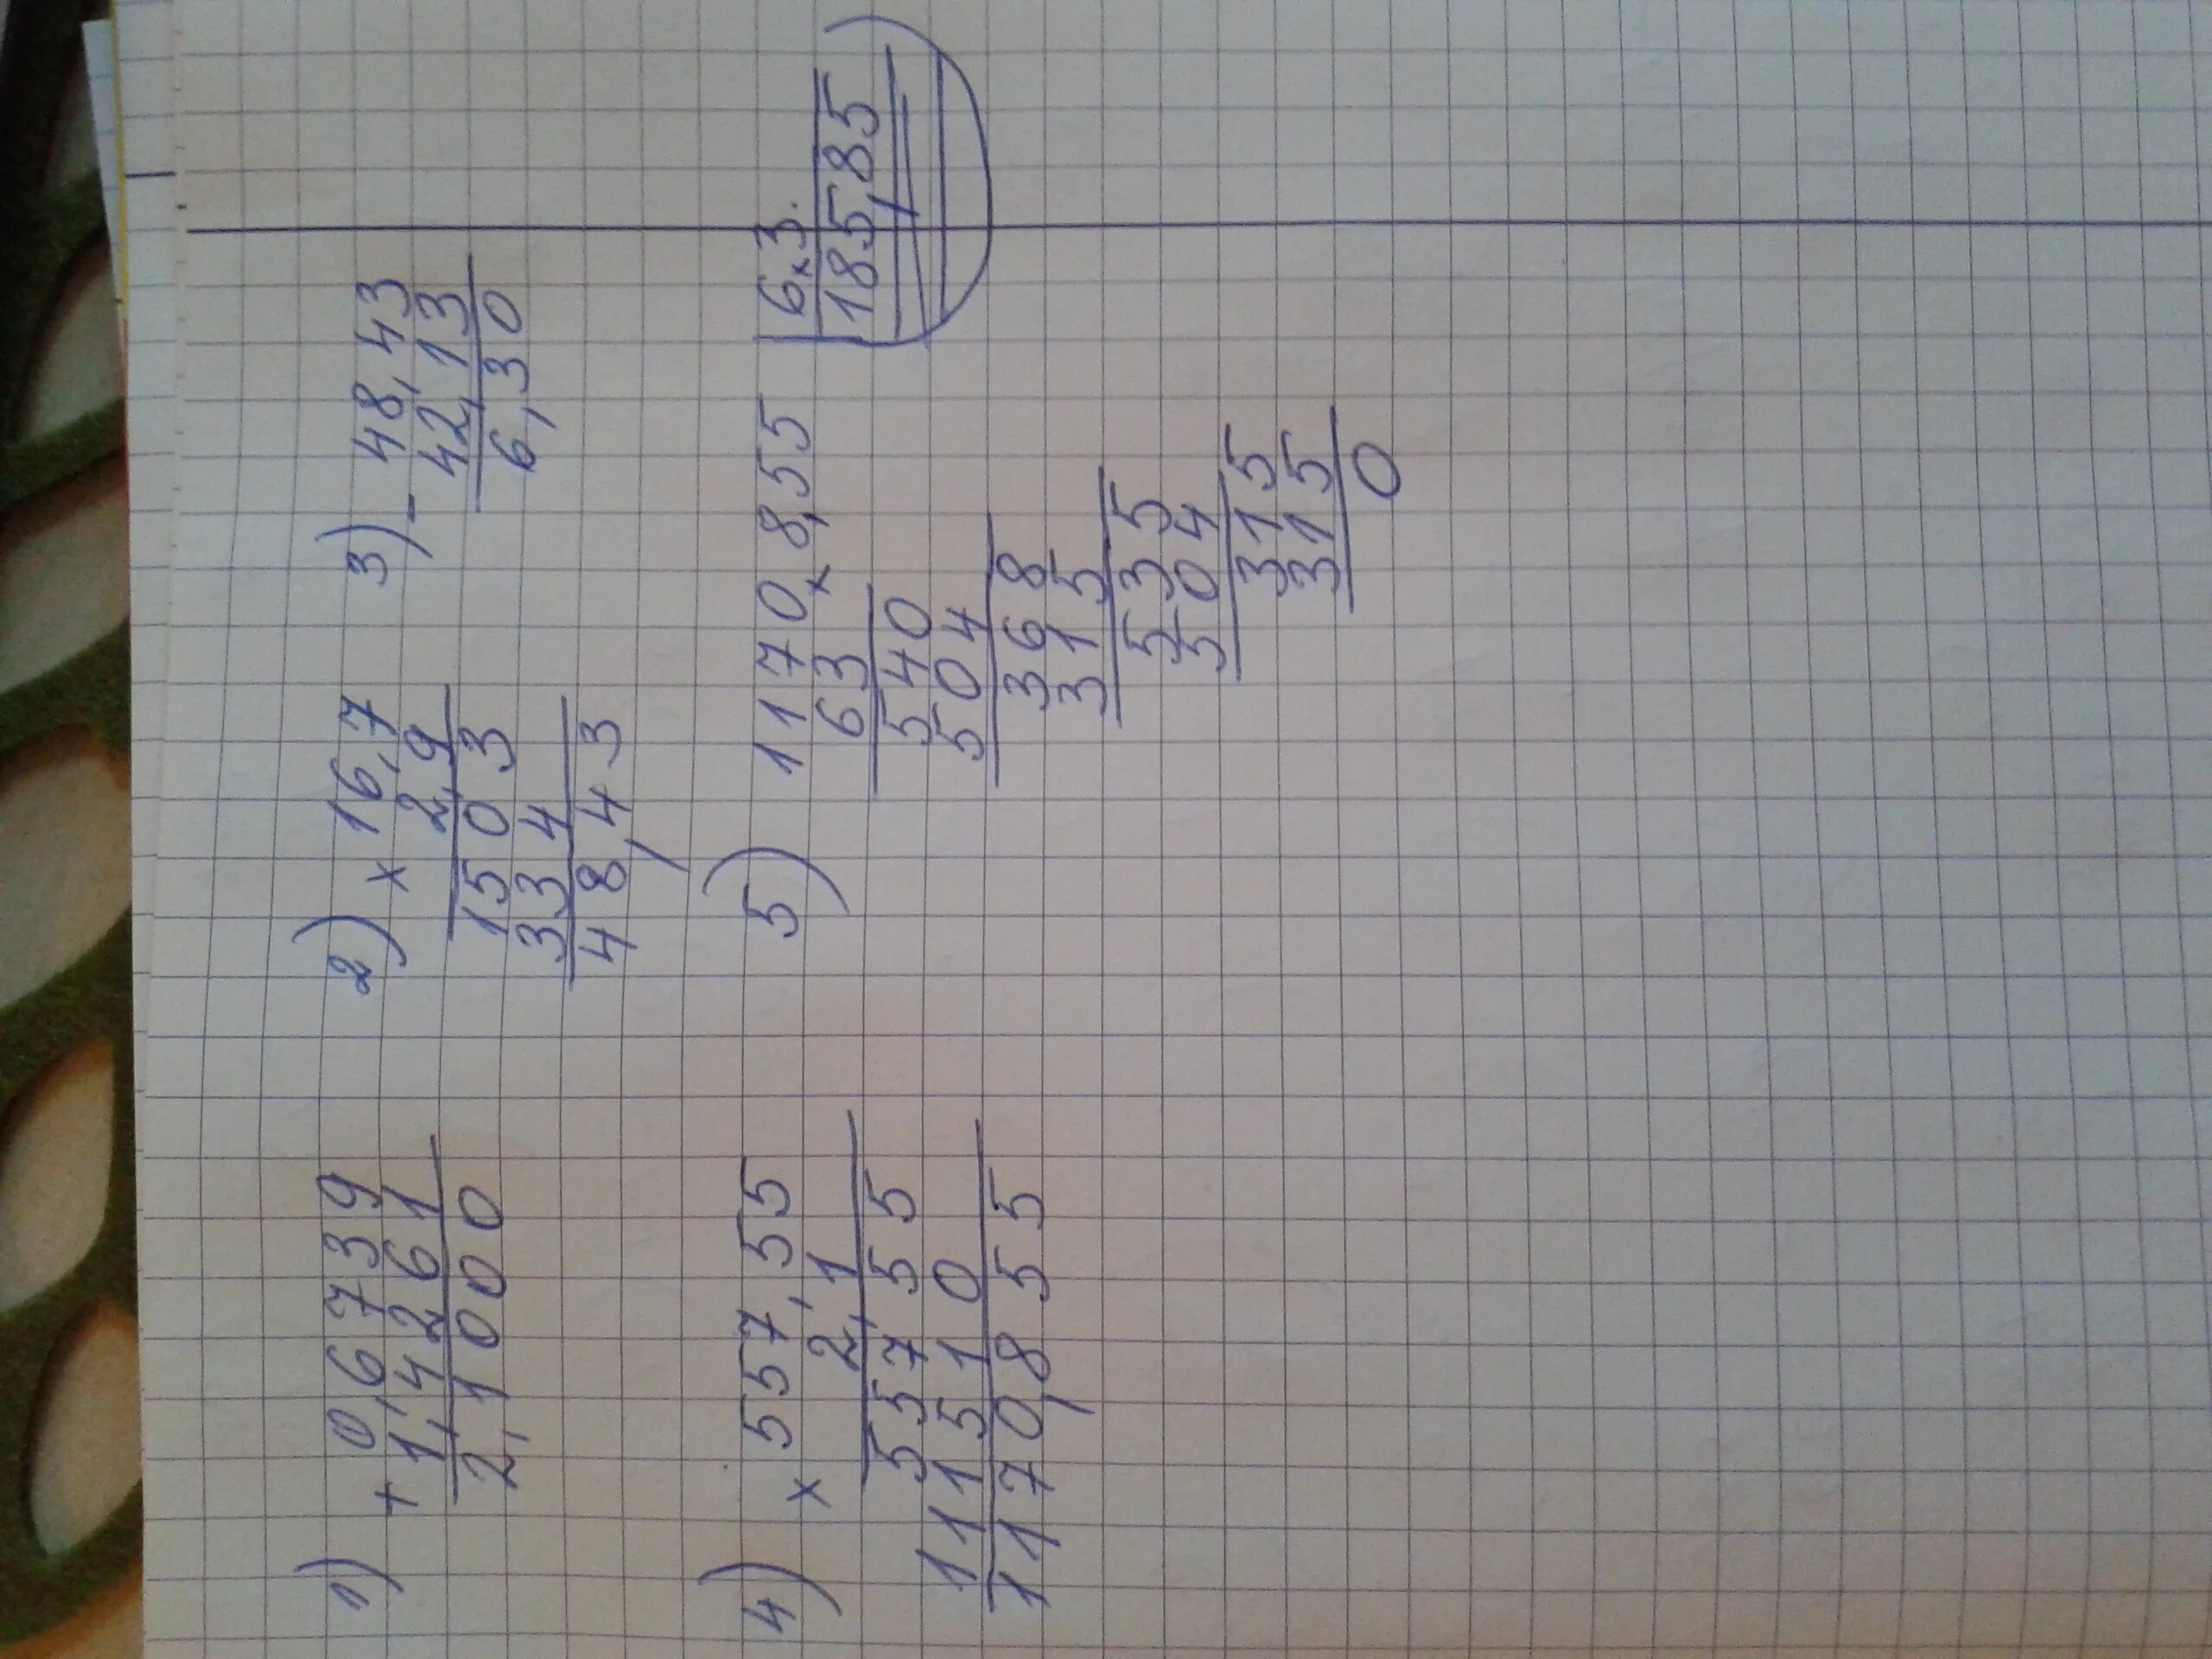 1) + 0,6739
1,4261
2,1000
2) × 16,7
2,9
1503
334
48,43
3) - 48,43
42,13
6,30
4) × 557,55
2,1
55755
111510
1170,855
5) 1170,8,55 | 6,3.
63 185,85
540
504
368
315
535
504
315
315
0